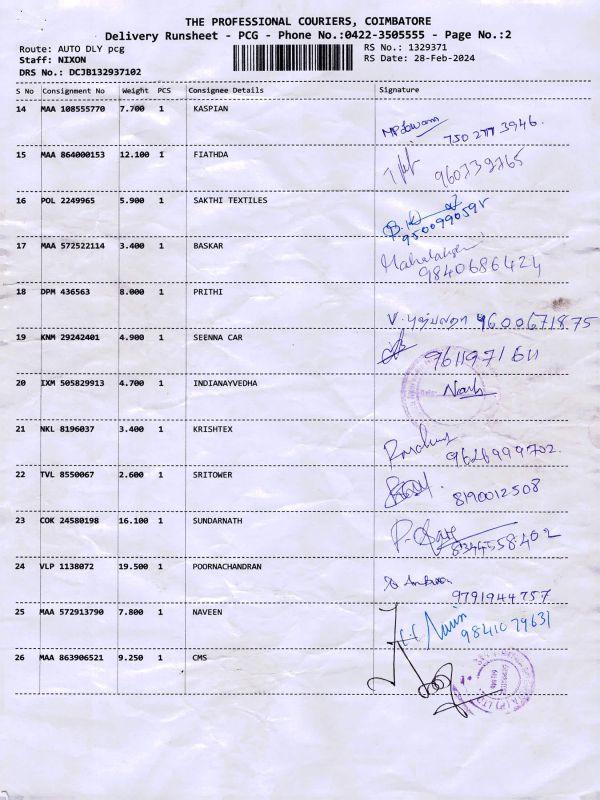 THE PROFESSIONAL COURIERS, COIMBATORE
Delivery Runsheet - PCG - Phone No.:0422-3505555 - Page No.:2
Route: AUTO DLY pcg RS No.: 1329371
Staff: NIXON RS Date: 28-Feb-2024
DRS No.: DCJB132937102
S No Consignment No Weight PCS Consignee Details Signature
14 MAA 108555770 7.700 1 KASPIAN
750 277 3946.
15 MAA 864000153 12.100 1 FIATHDA
16 POL 2249965 5.900 1 SAKTHI TEXTILES
17 MAA 572522114 3.400 1 BASKAR
9840686424
18 DPM 436563 8.000 1 PRITHI
V. 9600671875
19 KNM 29242401 4.900 1 SEENNA CAR
9611971611
20 IXM 505829913 4.700 1 INDIANAYVEDHA
21 NKL 8196037 3.400 1 KRISHTEX
9626999702.
22 TVL 8550067 2.600 1 SRITOWER
8190012508
23 COK 24580198 16.100 1 SUNDARNATH
24 VLP 1138072 19.500 1 POORNACHANDRAN
9791944757
25 MAA 572913790 7.800 1 NAVEEN
9841079631
26 MAA 863906521 9.250 1 CMS